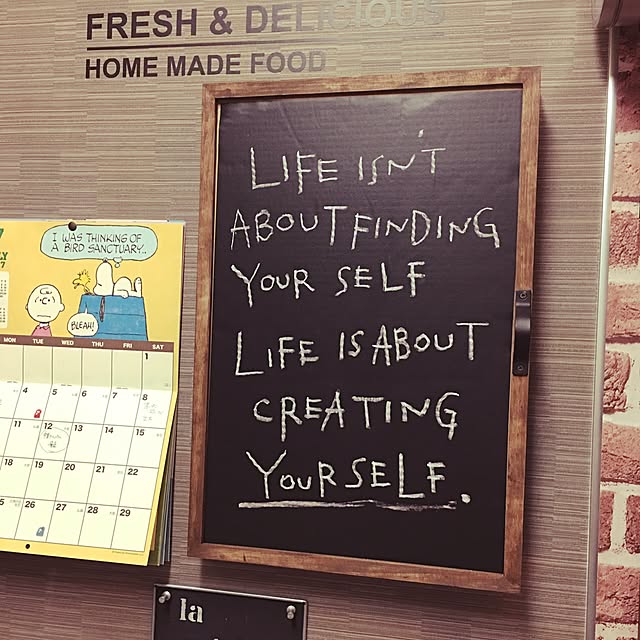 FRESH & DELICIOUS
HOME MADE FOOD
LIFE ISN'T
ABOUT FINDING
YOUR SELF
LIFE IS ABOUT
CREATING
YOURSELF.
7
I WAS THINKING OF
A BIRD SANCTUARY..
BLEAH!
MON TUE WED THU FRI SAT
1
4 5 6 7 8
11 12 13 14 15
18 19 20 21 22
25 26 27 28 29
la